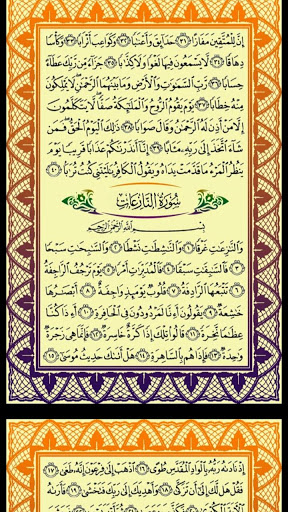 إِنَّ لِلْمُتَّقِينَ مَفَازًا ٣١ حَدَائِقَ وَأَعْنَابًا ٣٢ وَكَوَاعِبَ أَتْرَابًا ٣٣ وَكَأْسًا
دِهَاقًا ٣٤ لَّا يَسْمَعُونَ فِيهَا لَغْوًا وَلَا كِذَّابًا ٣٥ جَزَاءً مِّن رَّبِّكَ عَطَاءً
حِسَابًا ٣٦ رَّبِّ السَّمَٰوَٰتِ وَالْأَرْضِ وَمَا بَيْنَهُمَا الرَّحْمَٰنِ لَا يَمْلِكُونَ
مِنْهُ خِطَابًا ٣٧ يَوْمَ يَقُومُ الرُّوحُ وَالْمَلَٰئِكَةُ صَفًّا لَّا يَتَكَلَّمُونَ
إِلَّا مَنْ أَذِنَ لَهُ الرَّحْمَٰنُ وَقَالَ صَوَابًا ٣٨ ذَٰلِكَ الْيَوْمُ الْحَقُّ فَمَن
شَاءَ اتَّخَذَ إِلَىٰ رَبِّهِ مَـَٔابًا ٣٩ إِنَّا أَنذَرْنَٰكُمْ عَذَابًا قَرِيبًا يَوْمَ
يَنظُرُ الْمَرْءُ مَا قَدَّمَتْ يَدَاهُ وَيَقُولُ الْكَافِرُ يَٰلَيْتَنِي كُنتُ تُرَٰبًا ٤٠
سُورَةُ النَّازِعَاتِ
بِسْمِ اللَّهِ الرَّحْمَٰنِ الرَّحِيمِ
وَالنَّٰزِعَٰتِ غَرْقًا ١ وَالنَّٰشِطَٰتِ نَشْطًا ٢ وَالسَّٰبِحَٰتِ سَبْحًا
٣ فَالسَّٰبِقَٰتِ سَبْقًا ٤ فَالْمُدَبِّرَٰتِ أَمْرًا ٥ يَوْمَ تَرْجُفُ الرَّاجِفَةُ
٦ تَتْبَعُهَا الرَّادِفَةُ ٧ قُلُوبٌ يَوْمَئِذٍ وَاجِفَةٌ ٨ أَبْصَٰرُهَا
خَٰشِعَةٌ ٩ يَقُولُونَ أَءِنَّا لَمَرْدُودُونَ فِي الْحَافِرَةِ ١٠ أَءِذَا كُنَّا
عِظَٰمًا نَّخِرَةً ١١ قَالُوا تِلْكَ إِذًا كَرَّةٌ خَاسِرَةٌ ١٢ فَإِنَّمَا هِيَ زَجْرَةٌ
وَٰحِدَةٌ ١٣ فَإِذَا هُم بِالسَّاهِرَةِ ١٤ هَلْ أَتَىٰكَ حَدِيثُ مُوسَىٰ ١٥
إِذْ نَادَىٰهُ رَبُّهُ بِالْوَادِ الْمُقَدَّسِ طُوًى ١٦ اذْهَبْ إِلَىٰ فِرْعَوْنَ إِنَّهُ طَغَىٰ ١٧
فَقُلْ هَل لَّكَ إِلَىٰ أَن تَزَكَّىٰ ١٨ وَأَهْدِيَكَ إِلَىٰ رَبِّكَ فَتَخْشَىٰ ١٩ فَأَرَىٰهُ